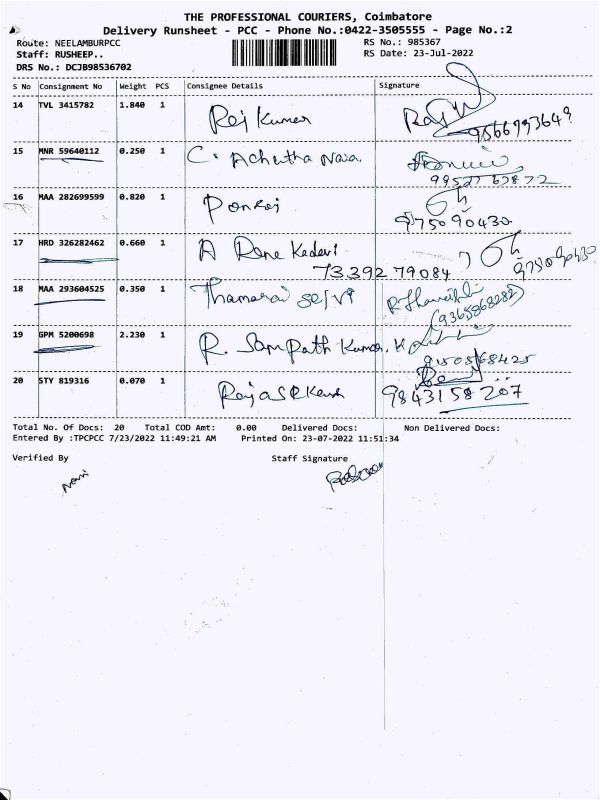 THE PROFESSIONAL COURIERS, Coimbatore
Delivery Runsheet - PCC - Phone No.:0422-3505555 - Page No.:2
Route: NEELAMBURPCC RS No.: 985367
Staff: RUSHEEP.. RS Date: 23-Jul-2022
DRS No.: DCJB98536702
S No Consignment No Weight PCS Consignee Details Signature
14 TVL 3415782 1.840 1 Raj Kumar
15 MNR 59640112 0.250 1 C. Achutha
9952767872
16 MAA 282699599 0.820 1 Ponraj
975090430
17 HRD 326282462 0.660 1 A Rane
73392 79084
18 MAA 293604525 0.350 1 Thamarai selvi
(9365868282)
19 GPM 5200698 2.230 1 R. Sampath Kumar.
9150568425
20 STY 819316 0.070 1
9843158207
Total No. Of Docs: 20 Total COD Amt: 0.00 Delivered Docs: Non Delivered Docs:
Entered By :TPCPCC 7/23/2022 11:49:21 AM Printed On: 23-07-2022 11:51:34
Verified By Staff Signature